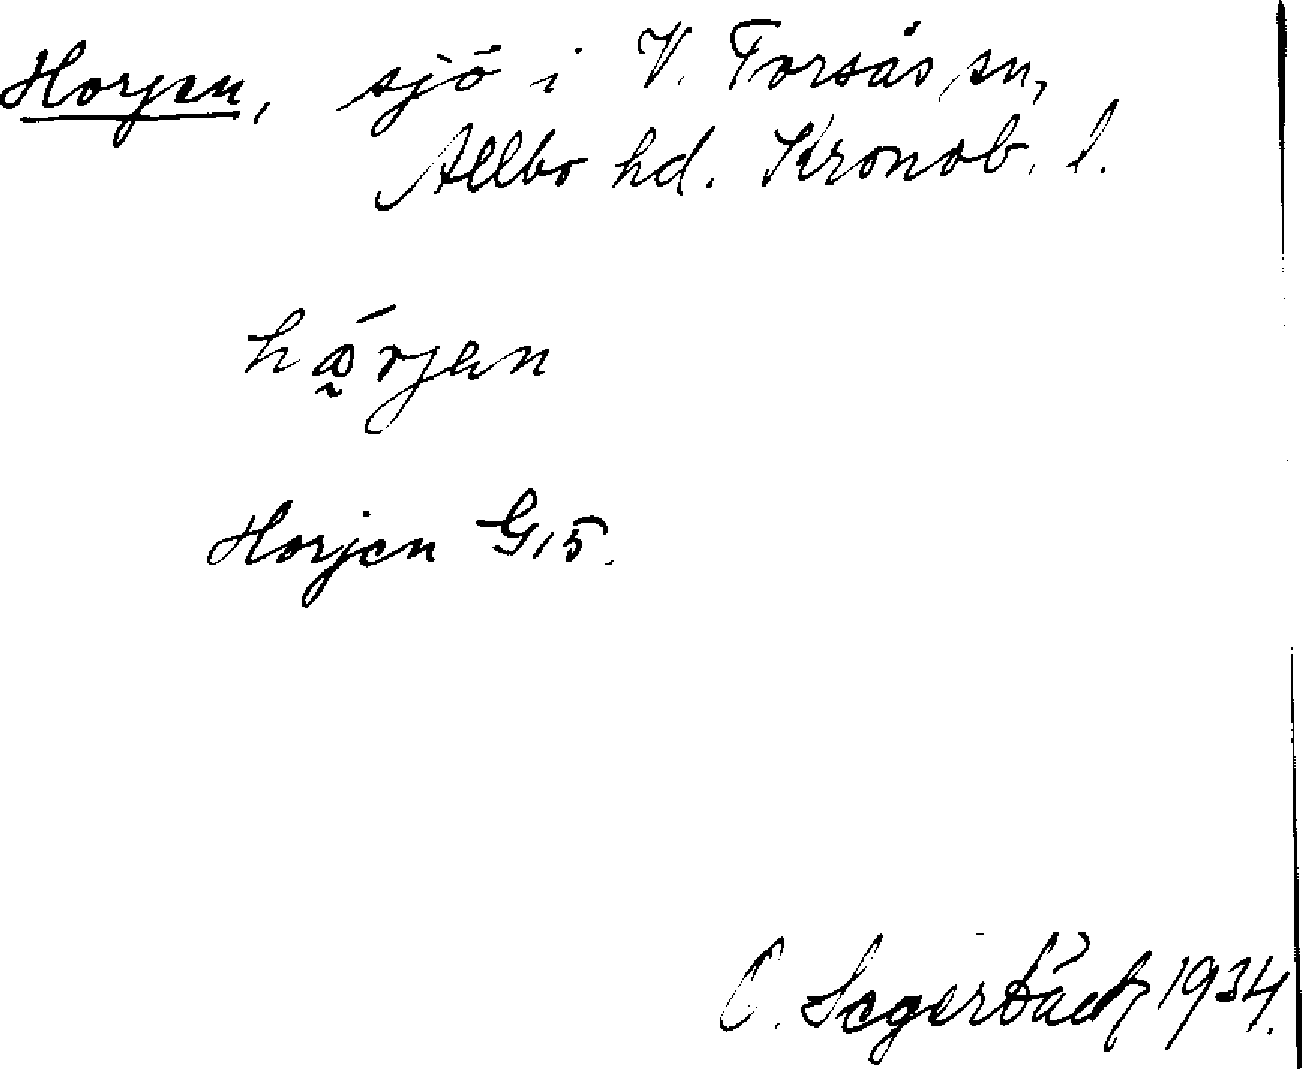 Horjen, sjö i V. Torsås sn,
Allbo hd. Kronob. l.
Horjen G15.
C. Segerbäck 1934.